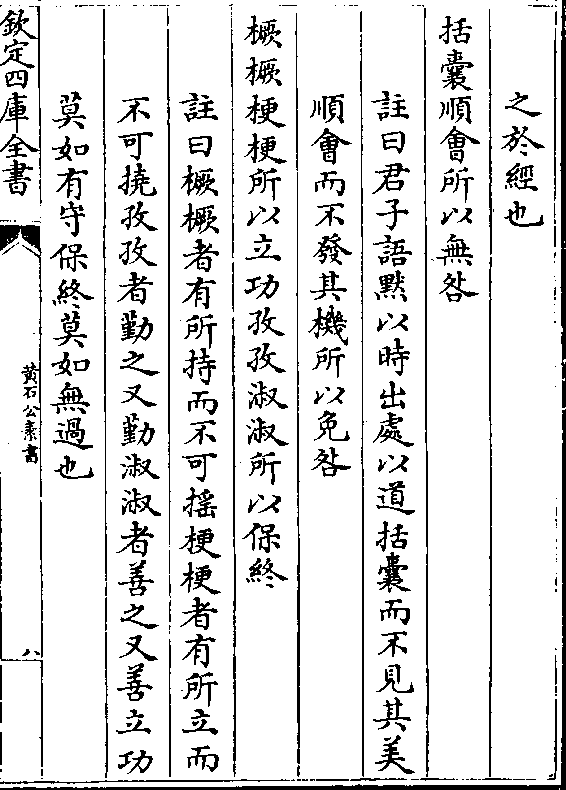 之於經也
括囊順會所以無咎
註曰君子語默以時出處以道括囊而不見其美
順會而不發其機所以免咎
橛橛梗梗所以立功孜孜淑淑所以保終
註曰橛橛者有所持而不可搖梗梗者有所立而
不可撓孜孜者勤之又勤淑淑者善之又善立功
莫如有守保終莫如無過也
欽定四庫全書
黄石公素書
八